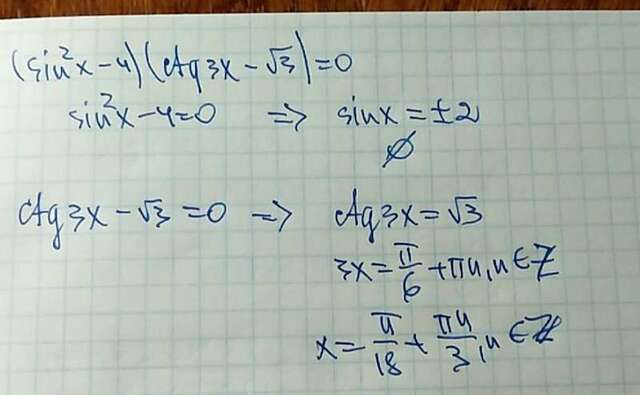 (sin²x-4)(ctg3x-√3)=0
sin²x-4=0 => sinx=±2
∅
ctg3x-√3=0 => ctg3x=√3
3x=π/6+πn, n∈Z
x=π/18+πn/3, n∈Z